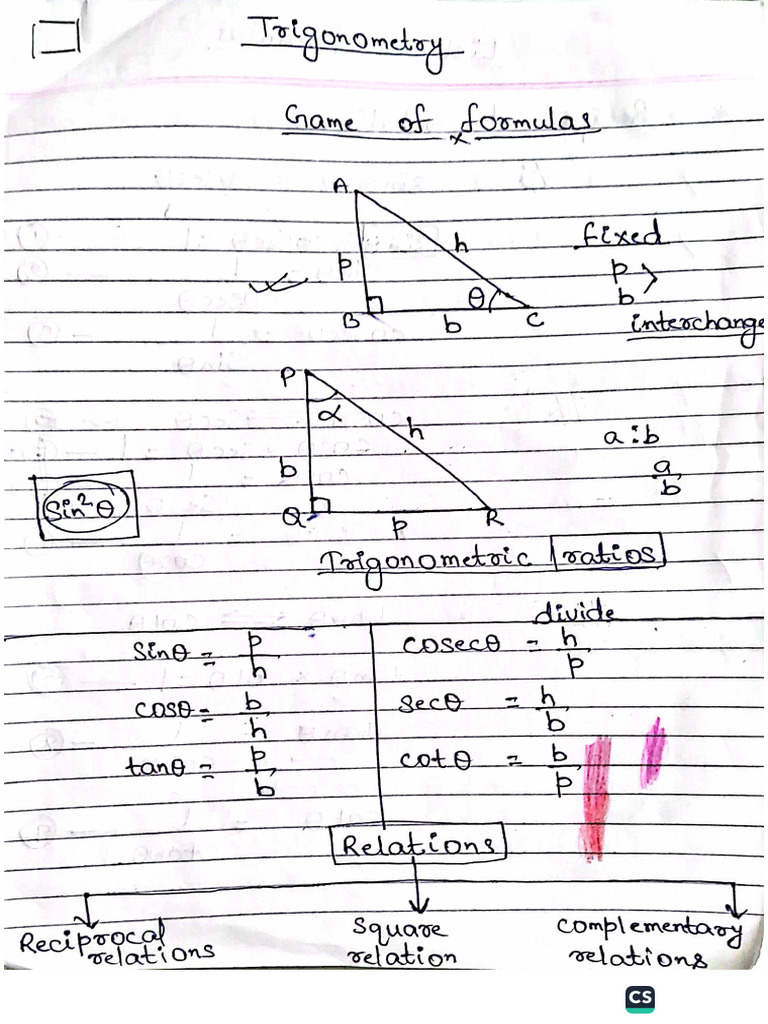 Trigonometry
Game of formulas
A
h
fixed
p
p
b
θ
B
b
C
interchange
P
α
h
a:b
b
a/b
Sin²θ
Q
p
R
Trigonometric ratios
divide
sinθ = p/h
cosecθ = h/p
cosθ = b/h
secθ = h/b
tanθ = p/b
cotθ = b/p
Relations
Reciprocal relations
Square relation
complementary relations
CS